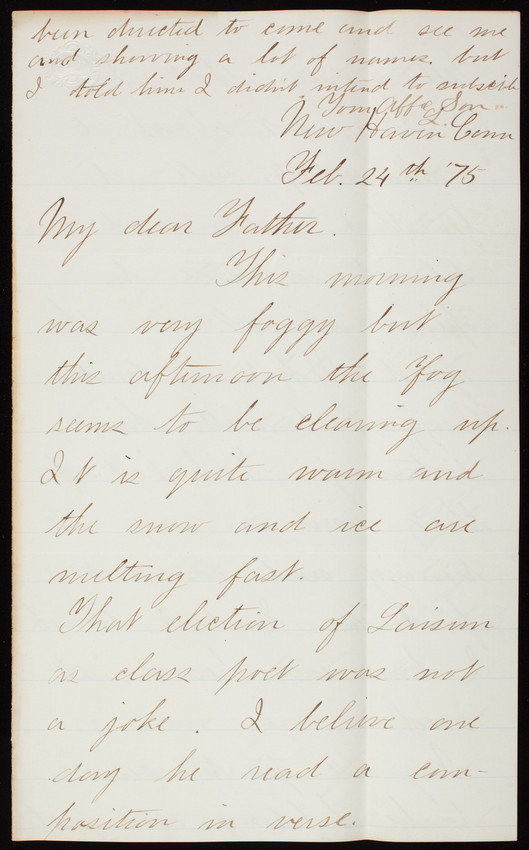 been directed to come and see me
and showing a lot of names. but
I told him I didn't intend to subscribe
Your Aff. Son
L.
New Haven Conn
Feb. 24th '75
My dear Father.
This morning
was very foggy but
this afternoon the fog
seems to be clearing up.
It is quite warm and
the snow and ice are
melting fast.
That election of
as class poet was not
a joke. I believe one
day he read a com-
position in verse.